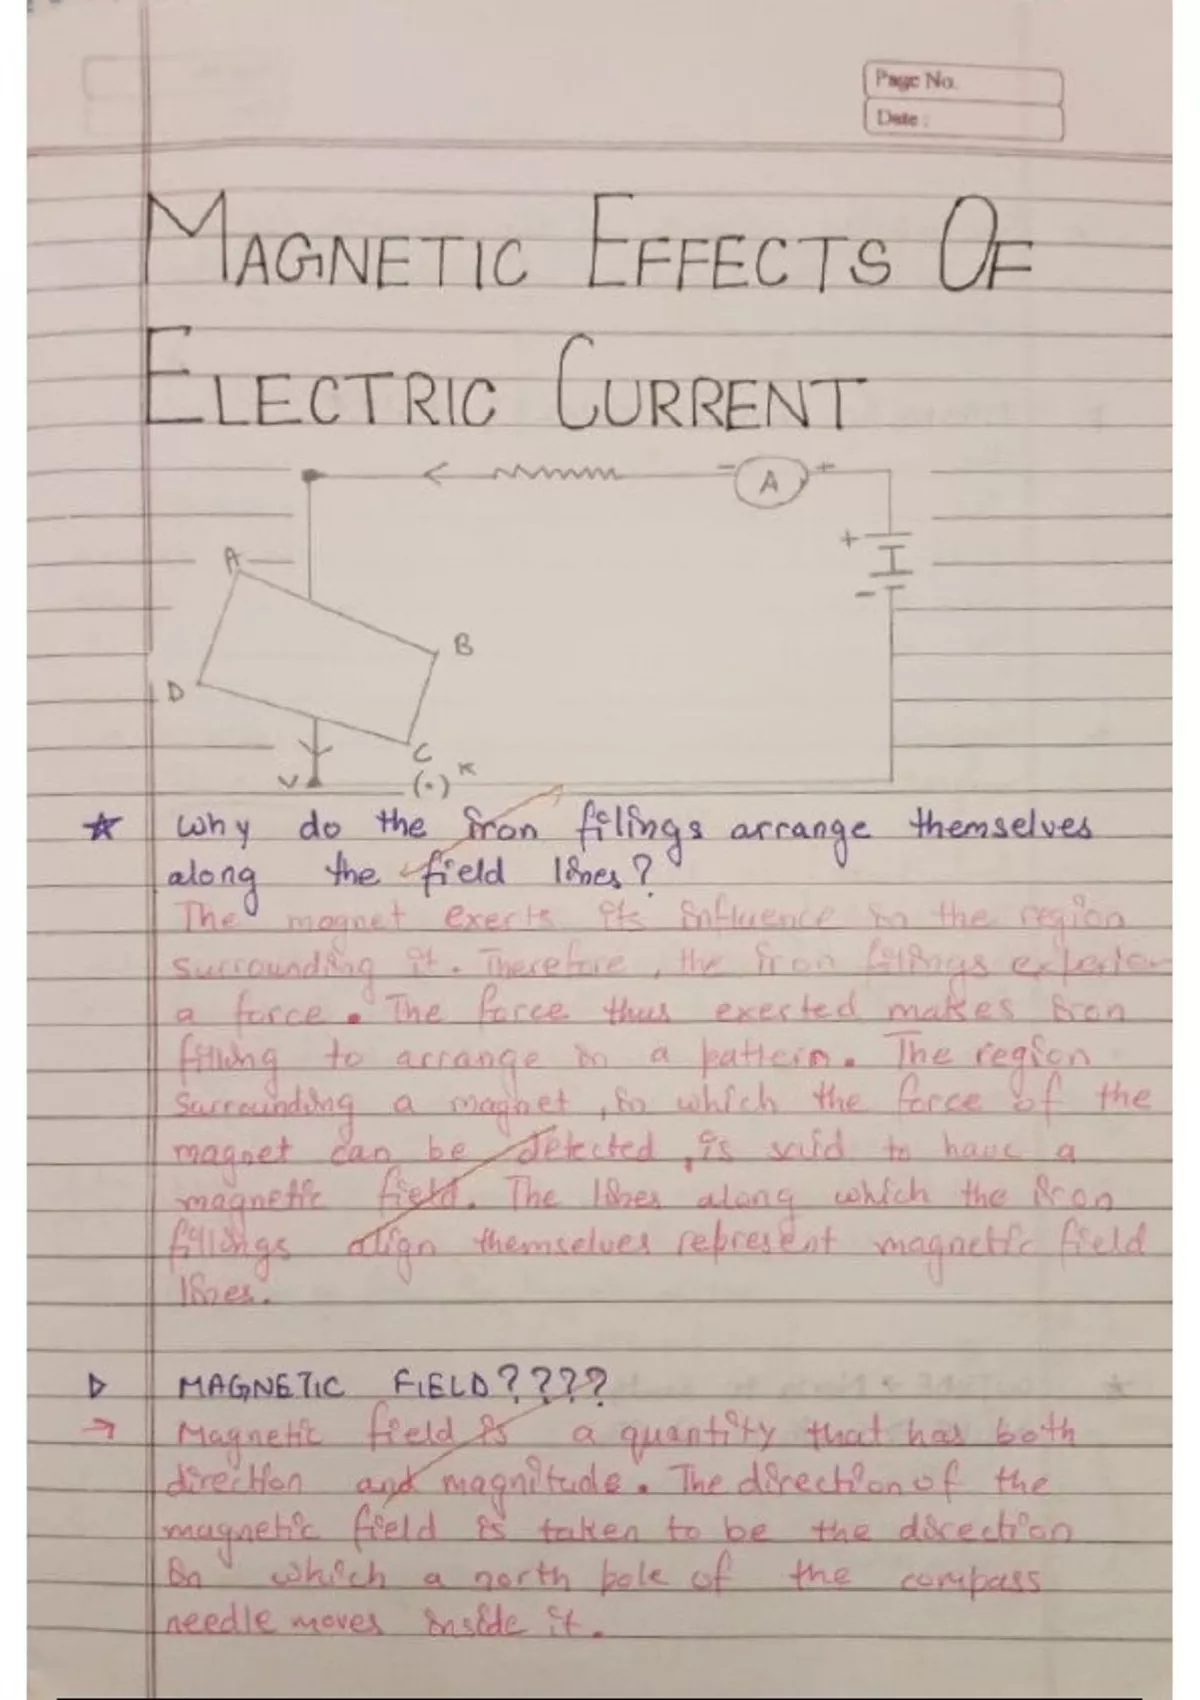 Page No.
Date :
MAGNETIC EFFECTS OF
ELECTRIC CURRENT
- A +
+
-
A
B
D
C
K
(.)
☆ Why do the iron filings arrange themselves
along the field lines?
The magnet exerts its influence in the region
surrounding it. Therefore, the iron filings experien
a force. The force thus exerted makes iron
filling to arrange in a pattern. The region
surrounding a magnet, in which the force of the
magnet can be detected, is said to have a
magnetic field. The lines along which the iron
fillings align themselves represent magnetic field
lines.
▷ MAGNETIC FIELD????
→ Magnetic field is a quantity that has both
direction and magnitude. The direction of the
magnetic field is taken to be the direction
in which a north pole of the compass
needle moves inside it.